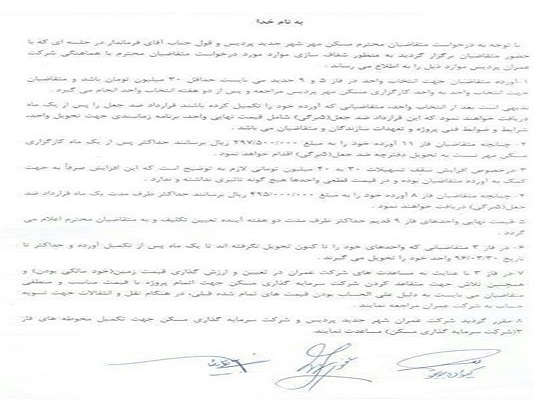 به نام خدا
با توجه به درخواست متقاضیان محترم مسکن مهر شهر جدید پردیس و قول جناب آقای فرماندار در جلسه ای که با
حضور متقاضیان برگزار گردید به منظور شفاف سازی موارد مورد درخواست متقاضیان با هماهنگی شرکت
عمران پردیس موارد ذیل را به اطلاع می رساند .
۱-آورده متقاضیان جهت انتخاب واحد در فاز ۵ و ۹ جدید می بایست حداقل ۳۰ میلیون تومان باشد و متقاضیان
جهت انتخاب واحد به واحد کارگزاری مسکن مهر پردیس مراجعه و پس از دو هفته انتخاب واحد انجام می گیرد .
بدیهی است بعد از انتخاب واحد، متقاضیانی که آورده خود را تکمیل کرده باشند قرارداد ضد جعل را پس از یک ماه
دریافت خواهند نمود که این قرارداد ضد جعل(۵برگی) شامل قیمت نهایی واحد، برنامه زمانبندی جهت تحویل واحد،
شرایط و ضوابط فنی پروژه و تعهدات سازندگان و متقاضیان می باشد .
۲- چنانچه متقاضیان فاز ۱۱ آورده خود را به مبلغ ۲۹۷/۵۰۰/۰۰۰ ریال برسانند حداکثر پس از یک ماه کارگزاری
مسکن مهر نسبت به تحویل دفترچه ضد جعل(۵برگی) اقدام خواهد نمود .
۳-درخصوص افزایش سقف تسهیلات ۳۰ به ۴۰ میلیون تومانی لازم به توضیح است که این افزایش صرفاً به جهت
کمک به آورده متقاضیان بوده و در قیمت قطعی واحدها هیچ گونه تاثیری نداشته و ندارد .
۴- چنانچه متقاضیان فاز ۸ آورده خود را به مبلغ ۴۹۵/۰۰۰/۰۰۰ ریال برسانند حداکثر ظرف مدت یک ماه قرارداد ضد
جعل(۵برگی) دریافت خواهند نمود .
۵-قیمت نهایی واحدهای فاز ۹ قدیم حداکثر ظرف مدت دو هفته آینده تعیین تکلیف و به متقاضیان محترم اعلام می
گردد .
۶- در فاز ۳ متقاضیانی که واحدهای خود را تاکنون تحویل نگرفته اند تا یک ماه پس از تکمیل آورده و حداکثر تا
تاریخ ۹۶/۰۳/۳۰ واحد خود را تحویل می گیرند .
۷-در فاز ۳ با عنایت به مساعدت های شرکت عمران در تعیین و ارزش گذاری قیمت زمین(خود مالکی بودن) و
همچنین تلاش جهت متقاعد کردن شرکت سرمایه گذاری مسکن جهت اتمام پروژه با قیمت مناسب و منطقی
متقاضیان می بایست به دلیل علی الحساب بودن قیمت های تمام شده قبلی، در هنگام نقل و انتقالات جهت تسویه
حساب به شرکت عمران مراجعه نمایند.
۸-مقرر گردید شرکت عمران شهر جدید پردیس و شرکت سرمایه گذاری مسکن جهت تکمیل محوطه های فاز
۳(شرکت سرمایه گذاری مسکن) مساعدت نمایند.